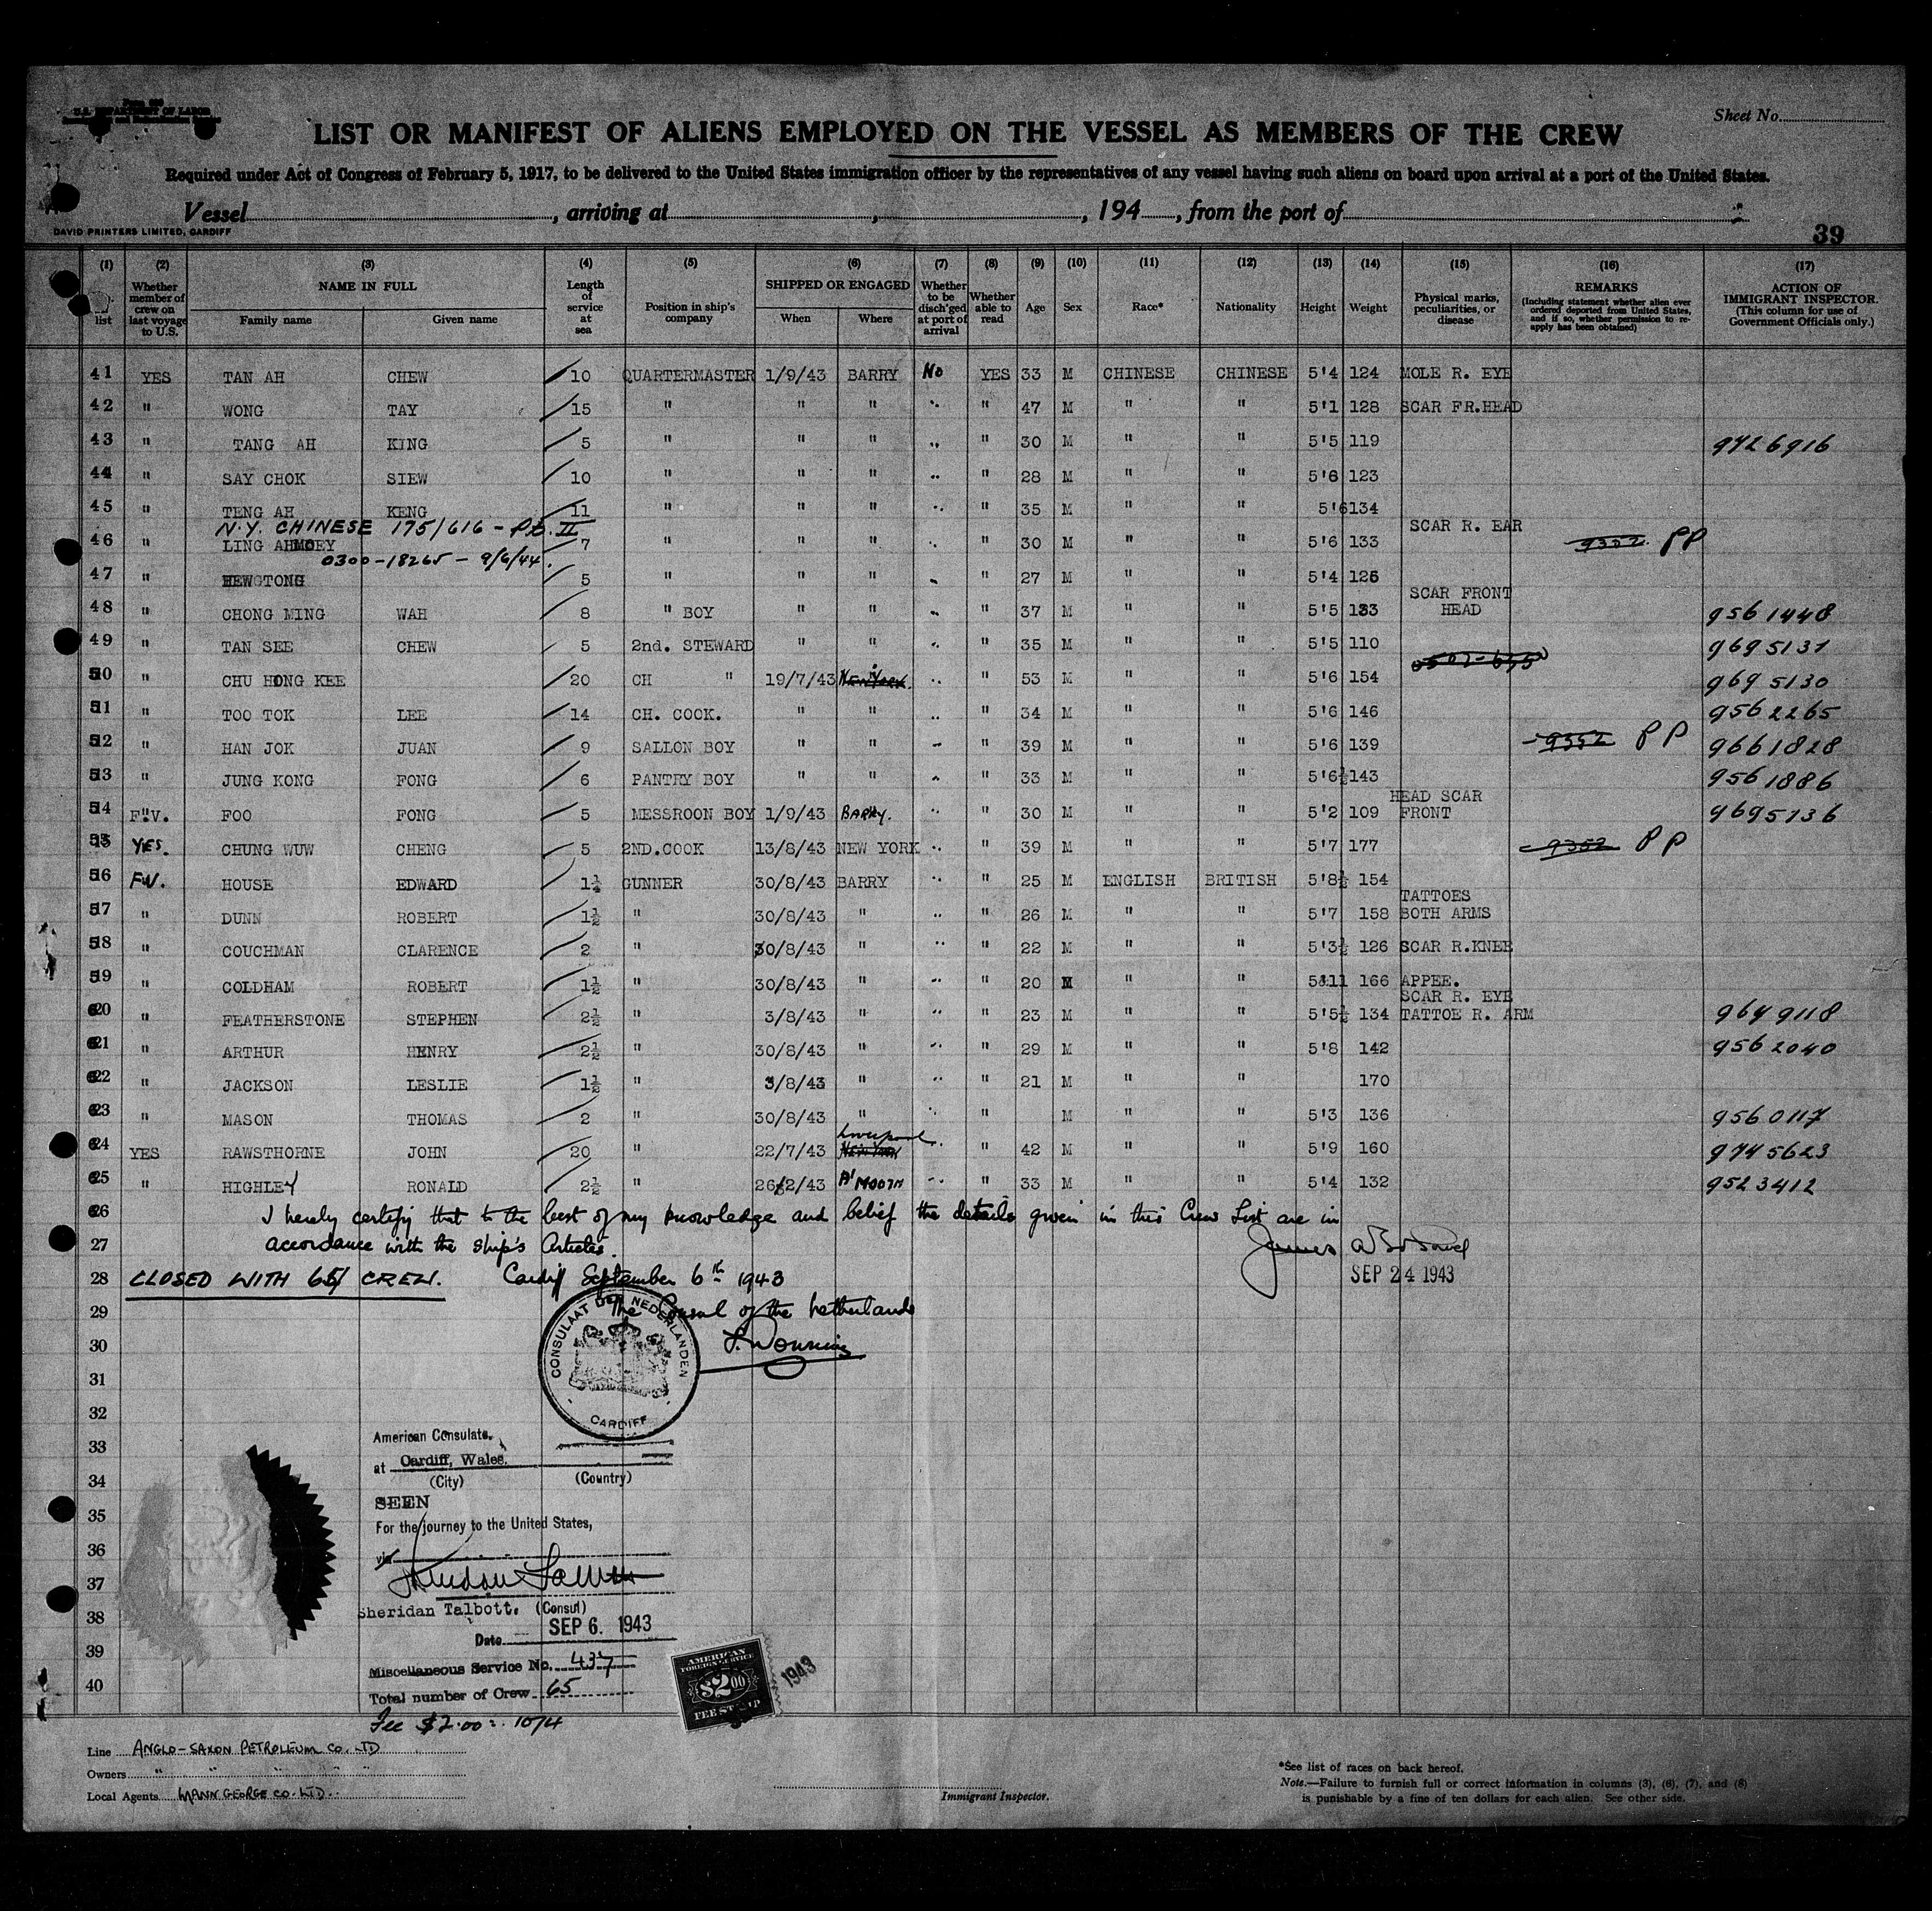 Form 680
U.S. DEPARTMENT OF LABOR
Sheet No.
LIST OR MANIFEST OF ALIENS EMPLOYED ON THE VESSEL AS MEMBERS OF THE CREW
Required under Act of Congress of February 5, 1917, to be delivered to the United States immigration officer by the representatives of any vessel having such aliens on board upon arrival at a port of the United States.
Vessel , arriving at , , 194 , from the port of
DAVID PRINTERS LIMITED, CARDIFF
39
(1) (2) (3) (4) (5) (6) (7) (8) (9) (10) (11) (12) (13) (14) (15) (16) (17)
list Whether member of crew on last voyage to U.S. NAME IN FULL Family name Given name Length of service at sea Position in ship's company SHIPPED OR ENGAGED When Where Whether to be disch'ged at port of arrival Whether able to read Age Sex Race* Nationality Height Weight Physical marks, peculiarities, or disease REMARKS (Including statement whether alien ever ordered deported from United States, and if so, whether permission to re-apply has been obtained) ACTION OF IMMIGRANT INSPECTOR. (This column for use of Government Officials only.)
41 YES TAN AH CHEW 10 QUARTERMASTER 1/9/43 BARRY No YES 33 M CHINESE CHINESE 5'4 124 MOLE R. EYE
42 " WONG TAY 15 " " " " " 47 M " " 5'1 128 SCAR FR.HEAD
43 " TANG AH KING 5 " " " " " 30 M " " 5'5 119 9726916
44 " SAY CHOK SIEW 10 " " " " " 28 M " " 5'6 123
45 " TENG AH KENG 11 " " " " " 35 M " " 5'6 134
N.Y. CHINESE 175/616 - Pt. II
46 " LING AH MOEY 7 " " " " " 30 M " " 5'6 133 SCAR R. EAR 9352 PP
0300-18265 - 9/6/44.
47 " HEW TONG 5 " " " " " 27 M " " 5'4 125
48 " CHONG MING WAH 8 " BOY " " " " 37 M " " 5'5 133 SCAR FRONT HEAD 9561448
49 " TAN SEE CHEW 5 2nd. STEWARD " " " " 35 M " " 5'5 110 9695131
50 " CHU HONG KEE 20 CH " 19/7/43 NEW YORK. " " 53 M " " 5'6 154 9695130
511 " TOO TOK LEE 14 CH. COOK. " " " " 34 M " " 5'6 146 9562265
512 " HAN JOK JUAN 9 SALLON BOY " " " " 39 M " " 5'6 139 9352 PP 9661828
513 " JUNG KONG FONG 6 PANTRY BOY " " " " 33 M " " 5'6½ 143 9561886
514 F.V. FOO FONG 5 MESSROON BOY 1/9/43 BARRY. " " 30 M " " 5'2 109 HEAD SCAR FRONT 9695136
515 YES. CHUNG WUW CHENG 5 2ND.COOK 13/8/43 NEW YORK " " 39 M " " 5'7 177 9352 PP
516 F.V. HOUSE EDWARD 1¼ GUNNER 30/8/43 BARRY " " 25 M ENGLISH BRITISH 5'8½ 154
517 " DUNN ROBERT 1½ " 30/8/43 " " " 26 M " " 5'7 158 TATTOES BOTH ARMS
518 " COUCHMAN CLARENCE 2 " 30/8/43 " " " 22 M " " 5'3½ 126 SCAR R.KNEE
519 " COLDHAM ROBERT 1½ " 30/8/43 " " " 20 M " " 5'11 166 APPEE.
620 " FEATHERSTONE STEPHEN 2½ " 3/8/43 " " " 23 M " " 5'5½ 134 SCAR R. EYE TATTOE R. ARM 9649118
621 " ARTHUR HENRY 2½ " 30/8/43 " " " 29 M " " 5'8 142 9562040
622 " JACKSON LESLIE 1½ " 3/8/43 " " " 21 M " " 170
623 " MASON THOMAS 2 " 30/8/43 " " " M " " 5'3 136 9560117
624 YES RAWSTHORNE JOHN 20 " 22/7/43 Liverpool NEW YORK " " 42 M " " 5'9 160 9745623
625 " HIGHLEY RONALD 2½ " 26/2/43 A'MOUTH " " 33 M " " 5'4 132 9523412
626 I hereby certify that to the best of my knowledge and belief the details given in this Crew List are in
27 accordance with the Ship's Articles.
James
28 CLOSED WITH 65/ CREW. Cardiff September 6th 1943
SEP 24 1943
29 The Consul of the Netherlands
CONSULAAT DER NEDERLANDEN
CARDIFF
30
31
32
33 American Consulate,
at Cardiff, Wales.
34 (City) (Country)
SEEN
35 For the journey to the United States,
36 via
37
Sheridan Talbott. (Consul)
38 Date SEP 6. 1943
39 Miscellaneous Service No. 437
40 Total number of Crew 65
Fee $2.00 = 10/4
AMERICAN FOREIGN SERVICE $2.00 FEE STAMP
1943
Line ANGLO-SAXON PETROLEUM CO. LTD
Owners " " " "
Local Agents MANN GEORGE CO. LTD.
Immigrant Inspector.
*See list of races on back hereof.
Note.—Failure to furnish full or correct information in columns (3), (6), (7), and (8)
is punishable by a fine of ten dollars for each alien. See other side.